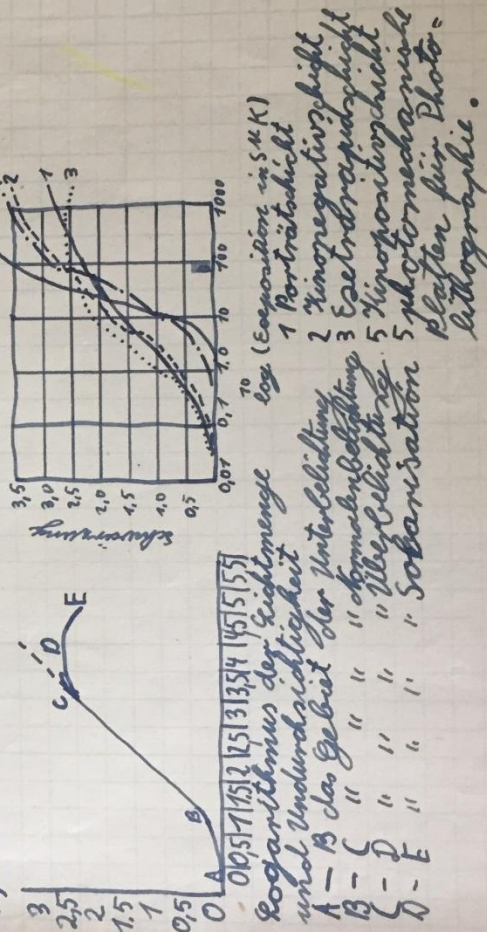 3
2,5
2
1.5
1
0,5
0
A
B
C
D
E
0|0,5|1|1,5|2|2,5|3|3,5|4|4,5|5|5,5|
Logarithmus der Lichtmenge
und Undurchsichtigkeit
A — B das Gebiet der Unterbelichtung
B — C " " " Normalenbelichtung
C — D " " " Überbelichtung
D - E " " " Solarisation
Schwärzung
3,5
3,0
2,5
2,0
1,5
1.0
0,5
0,01 0,1 1.0 10 100 1000
2
1
3
log 10 (Exposition in S M K)
1 Porträtschicht
2 Kinonegativschicht
3 Extrarapidschicht
5 Kinopositivschicht
5 photomechanische
Platten für Photo=
lithographie.